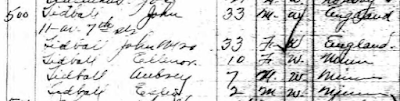 500 Tidball John 33 M. W. England
11-av. 7th St
Tidball John Mrs 33 F. W. England.
Tidball Ellinor 10 F. W. Minn
Tidball Aubrey 7 M. W. Minn
Tidball 2 M W. Minn